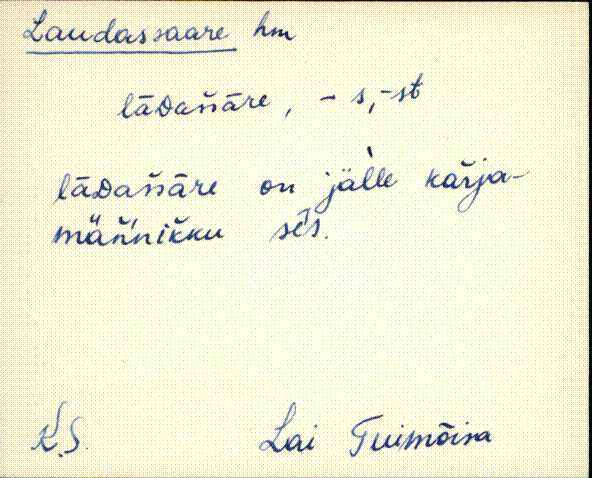 Laudassaare hm
lāᴅas̆s̆āre, - s,-st
lāᴅas̆s̆āre on jàlle kar̆ja-
män̆'n̆ik̆ku sēs.
K.S. Lai Tuimõisa